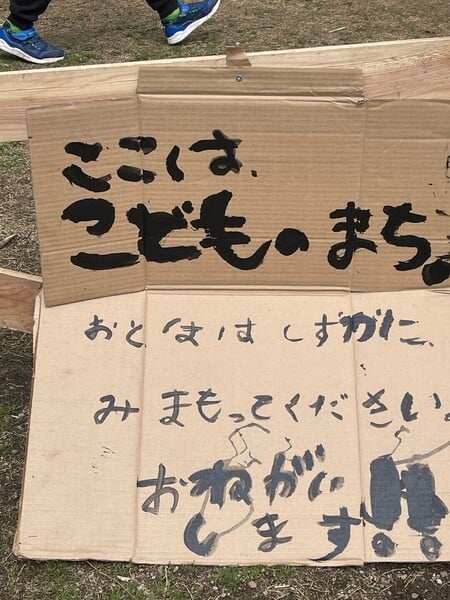 ここは、
こどものまち。
おとなはしずかに、
みまもってください。
おねがい
します!!